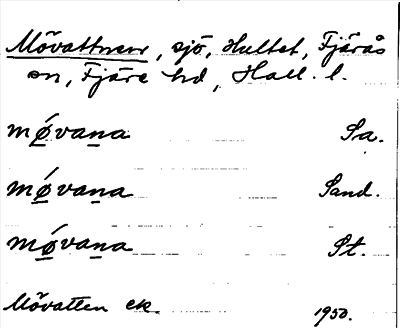 Mövattnen, sjö, Hultet, Fjärås
sn, Fjäre hd, Hall. l.
mǿvana Sa.
mǿvana Sand.
mǿvana St.
Mövatten ek. 1950.